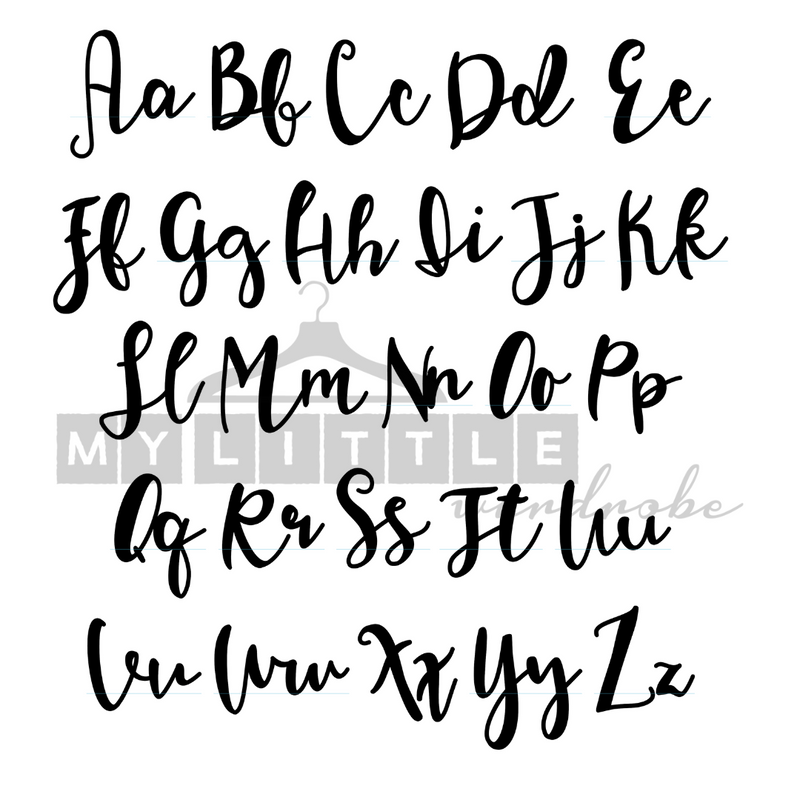 Aa Bb Cc Dd Ee
Ff Gg Hh Ii Jj Kk
Ll Mm Nn Oo Pp
MY LITTLE
wardrobe
Qq Rr Ss Tt Uu
Vv Ww Xx Yy Zz